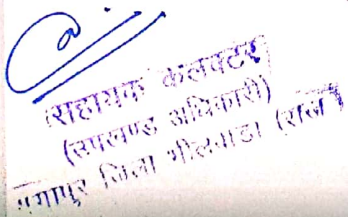 (सहायक कलक्टर)
(उपखण्ड अधिकारी)
गंगापुर जिला भीलवाडा (राज